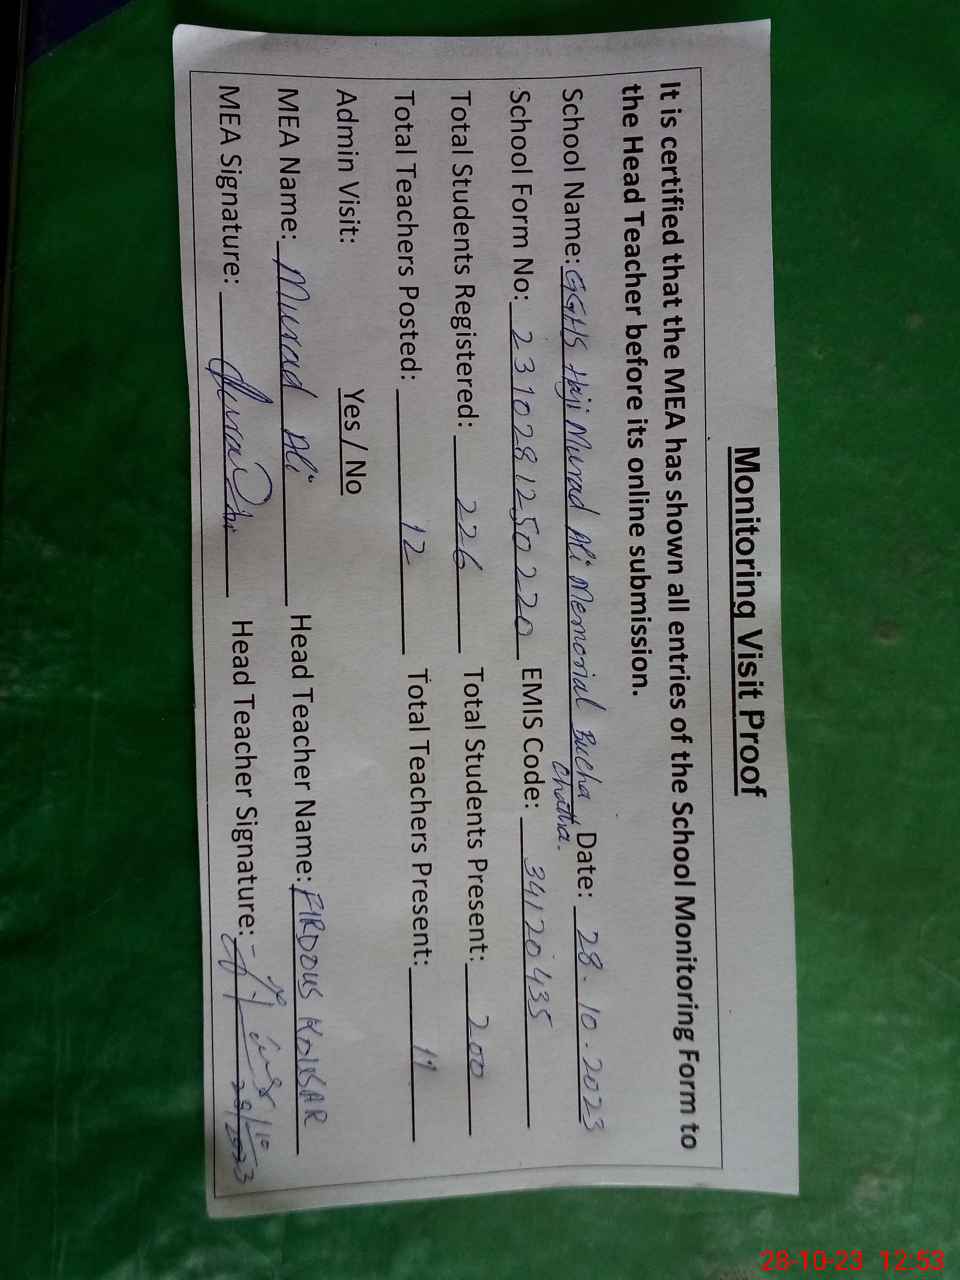 Monitoring Visit Proof
It is certified that the MEA has shown all entries of the School Monitoring Form to
the Head Teacher before its online submission.
School Name: GGHS Haji Murad Ali Memorial Bucha Chatha. Date: 28.10.2023
School Form No: 2310281250220 EMIS Code: 34120435
Total Students Registered: 226 Total Students Present: 200
Total Teachers Posted: 12 Total Teachers Present: 11
Admin Visit: Yes / No
MEA Name: Murad Ali Head Teacher Name: FIRDOUS KOUSAR
MEA Signature: Head Teacher Signature: 28/10/2023
28-10-23 12:53